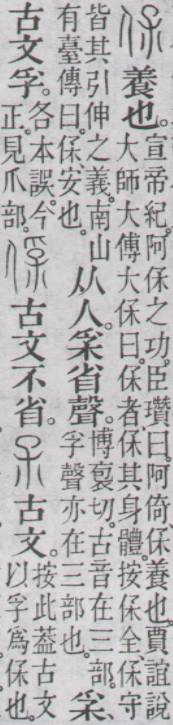 養也。
宣帝紀。阿保之功。臣瓚曰。阿倚、保養也。賈誼說
大師大傅大保曰。保者、保其身體。按保全保守
皆其引伸之義。南山
有臺傳曰。保安也。
从人。𤓽省聲。
博裒切。古音在三部。
孚聲亦在三部也。
𤓽、
古文孚。
各本誤。今
正。見爪部。
古文不省。
古文。
按此葢古文
以孚爲保也。